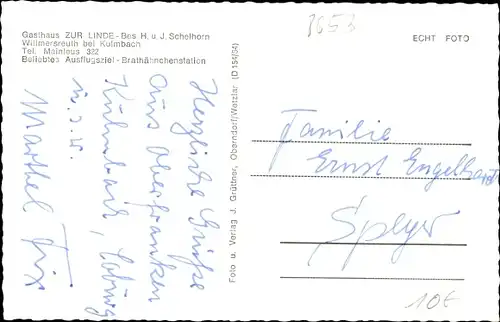 Gasthaus ZUR LINDE - Bes H. u. J. Schelhorn
Willmersreuth bei Kulmbach
Tel. Mainleus 322
Beliebtes Ausflugsziel - Brathähnchenstation
3653
ECHT FOTO
Herzliche Grüße
aus Oberfranken
Kulmbach, Coburg
u.s.w.
Marthel Fix
Foto u. Verlag J. Grüttner, Oberndorf/Wetzlar (D 154/64)
Familie
Ernst Engelhardt
Speyer
10€